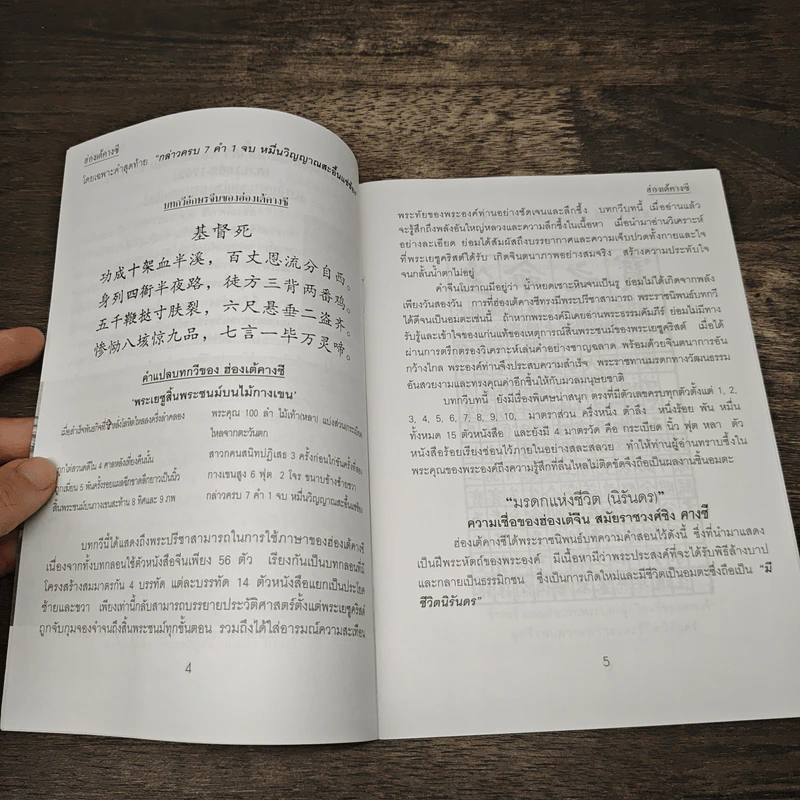 ฮ่องเต้คางซี
โดยเฉพาะคำสุดท้าย "กล่าวครบ 7 คำ 1 จบ หมื่นวิญญาณสะอื้นแซ่ซ้อง"
บทกวีอักษรจีนของฮ่องเต้คางซี
基督死
功成十架血半溪，百丈恩流分自西。
身列四衙半夜路，徒方三背两番鸡。
五千鞭挞寸肤裂，六尺悬垂二盗齐。
惨恸八垓惊九品，七言一毕万灵啼。
คำแปลบทกวีของ ฮ่องเต้คางซี
'พระเยซูสิ้นพระชนม์บนไม้กางเขน'
เมื่อสำเร็จพันธกิจที่ หลั่งโลหิตไหลลงครึ่งลำคลอง
พระคุณ 100 ลำ ไม้เท้า(หลา) แบ่งส่วนกระแส
ไหลจากตะวันตก
ถูกไต่สวนคดีใน 4 ศาลหลังเที่ยงคืนนั้น
สาวกคนสนิทปฏิเสธ 3 ครั้งก่อนไก่ขันครั้งที่สอง
ถูกเฆี่ยน 5 พันครั้งรอยแผลฉีกขาดลึกยาวเป็นนิ้ว
กางเขนสูง 6 ฟุต 2 โจร ขนาบข้างซ้ายขวา
สิ้นพระชนม์บนกางเขนสะท้าน 8 ทิศและ 9 ภพ
กล่าวครบ 7 คำ 1 จบ หมื่นวิญญาณสะอื้นแซ่ซ้อง
บทกวีนี้ได้แสดงถึงพระปรีชาสามารถในการใช้ภาษาของฮ่องเต้คางซี
เนื่องจากทั้งบทกลอนใช้ตัวหนังสือจีนเพียง 56 ตัว เรียงกันเป็นบทกลอนที่มี
โครงสร้างสมมาตรกัน 4 บรรทัด แต่ละบรรทัด 14 ตัวหนังสือแยกเป็นประโยค
ซ้ายและขวา เพียงเท่านี้กลับสามารถบรรยายประวัติศาสตร์ตั้งแต่พระเยซูคริสต์
ถูกจับกุมจองจำจนถึงสิ้นพระชนม์ทุกขั้นตอน รวมถึงได้ใส่อารมณ์ความสะเทือน
4
ฮ่องเต้คางซี
พระทัยของพระองค์ท่านอย่างชัดเจนและลึกซึ้ง บทกวีบทนี้ เมื่ออ่านแล้ว
จะรู้สึกถึงพลังอันใหญ่หลวงและความลึกซึ้งในเนื้อหา เมื่อนำมาอ่านวิเคราะห์
อย่างละเอียด ย่อมได้สัมผัสถึงบรรยากาศและความเจ็บปวดทั้งกายและใจ
ที่พระเยซูคริสต์ได้รับ เกิดจินตนาภาพอย่างสมจริง สร้างความประทับใจ
จนกลั้นน้ำตาไม่อยู่
คำจีนโบราณมีอยู่ว่า น้ำหยดเซาะหินจนเป็นรู ย่อมไม่ได้เกิดจากพลัง
เพียงวันสองวัน การที่ฮ่องเต้คางซีทรงมีพระปรีชาสามารถ พระราชนิพนธ์บทกวี
ได้ดีจนเป็นอมตะเช่นนี้ ถ้าหากพระองค์มิเคยอ่านพระธรรมคัมภีร์ ย่อมไม่มีทาง
รับรู้และเข้าใจของแก่นแท้ของเหตุการณ์สิ้นพระชนม์ของพระเยซูคริสต์ เมื่อได้
ผ่านการตรึกตรองวิเคราะห์เล่นคำอย่างชาญฉลาด พร้อมด้วยจินตนาการอัน
กว้างไกล พระองค์ท่านจึงประสบความสำเร็จ พระราชทานมรดกทางวัฒนธรรม
อันสวยงามและทรงคุณค่าอีกชิ้นให้กับมวลมนุษยชาติ
บทกวีบทนี้ ยังมีเรื่องพิเศษน่าสนุก ตรงที่มีตัวเลขครบทุกตัวตั้งแต่ 1, 2,
3, 4, 5, 6, 7, 8, 9, 10, มาตราส่วน ครึ่งหนึ่ง ตำลึง หนึ่งร้อย พัน หมื่น
ทั้งหมด 15 ตัวหนังสือ และยังมี 4 มาตรวัด คือ กระเบียด นิ้ว ฟุต หลา ตัว
หนังสือร้อยเรียงซ่อนไว้ภายในอย่างสละสลวย ทำให้ท่านผู้อ่านทราบซึ้งใน
พระคุณของพระองค์ถึงความรู้สึกที่ลื่นไหลไม่ติดขัดจึงถือเป็นผลงานชิ้นอมตะ
"มรดกแห่งชีวิต (นิรันดร)"
ความเชื่อของฮ่องเต้จีน สมัยราชวงศ์ชิง คางซี
ฮ่องเต้คางซีได้พระราชนิพนธ์บทความคำสอนไว้ดังนี้ ซึ่งที่นำมาแสดง
เป็นฝีพระหัตถ์ของพระองค์ มีเนื้อหามีว่าพระประสงค์ที่จะได้รับพิธีล้างบาป
และกลายเป็นธรรมิกชน ซึ่งเป็นการเกิดใหม่และมีชีวิตเป็นอมตะซึ่งถือเป็น "มี
ชีวิตนิรันดร"
5